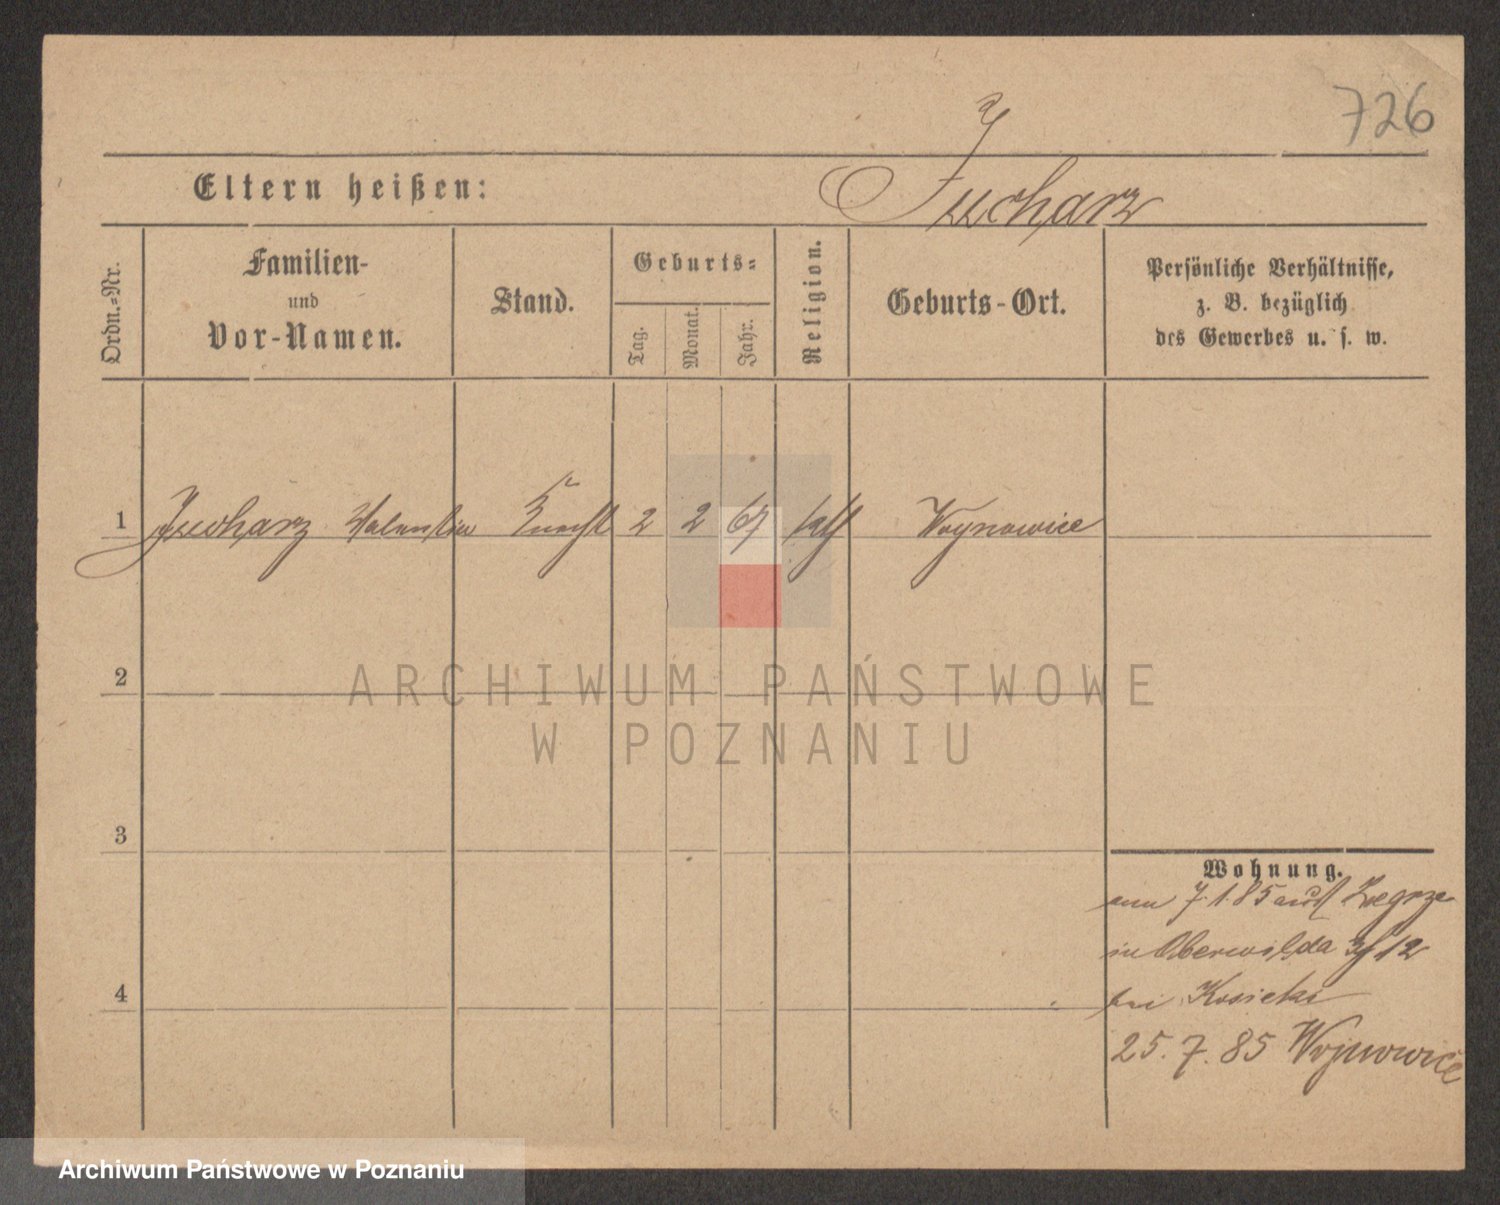 726
Eltern heißen:
Ordn.-Nr.
Familien-
und
Vor-Namen.
Stand.
Geburts-
Tag.
Monat.
Jahr.
Religion.
Geburts-Ort.
Persönliche Verhältnisse,
z. B. bezüglich
des Gewerbes u. s. w.
1 Valentin Knecht 2 2 67 kath Woynowice
2
ARCHIWUM PAŃSTWOWE
W POZNANIU
3
Wohnung.
7.1.85 aus Zegrze
in Oberwilda 12
bei Kosicki
4
25.7.85 Wojnowice
Archiwum Państwowe w Poznaniu